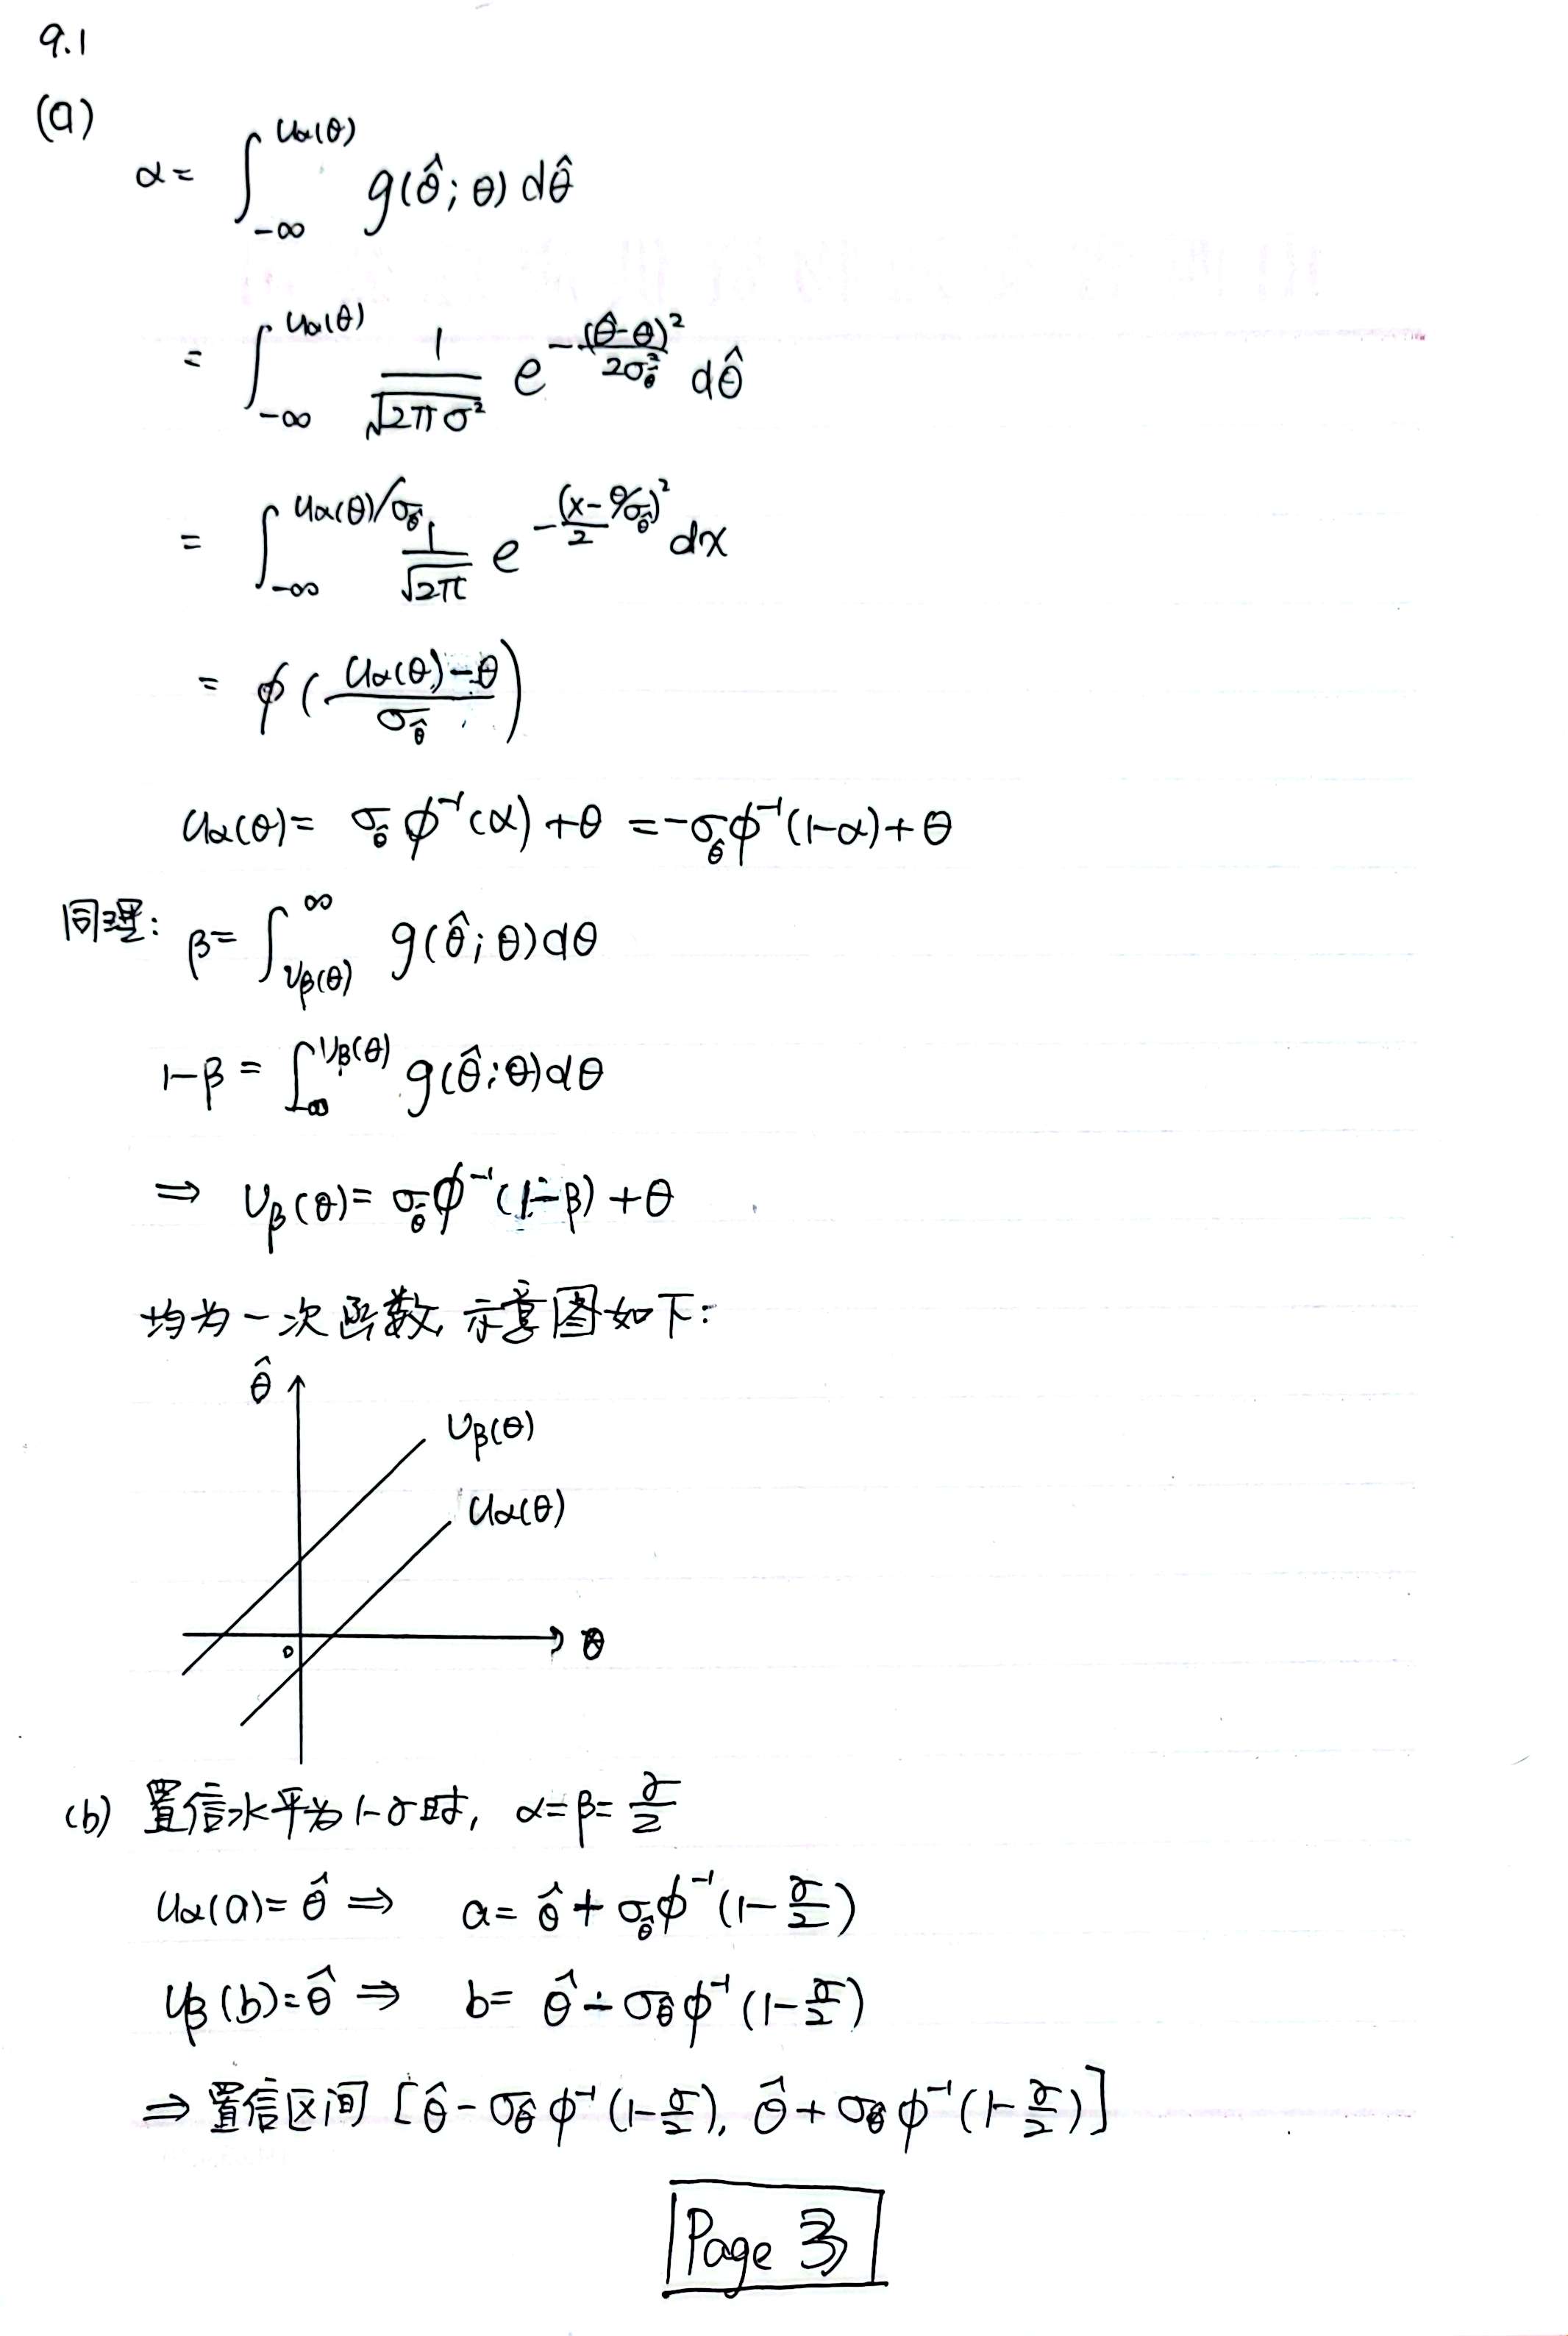 9.1
(a)
α = ∫_{-∞}^{u_α(θ)} g(θ̂; θ) dθ̂
= ∫_{-∞}^{u_α(θ)} 1/√(2πσ²) e^{-(θ̂-θ)²/2σ_θ̂²} dθ̂
= ∫_{-∞}^{u_α(θ)/σ_θ̂} 1/√(2π) e^{-(x-θ/σ_θ̂)²/2} dx
= ϕ((u_α(θ)-θ)/σ_θ̂)
u_α(θ) = σ_θ̂ ϕ⁻¹(α) + θ = -σ_θ̂ ϕ⁻¹(1-α) + θ
同理: β = ∫_{v_β(θ)}^{∞} g(θ̂; θ) dθ
1-β = ∫_{-∞}^{v_β(θ)} g(θ̂; θ) dθ
⇒ v_β(θ) = σ_θ̂ ϕ⁻¹(1-β) + θ
均为一次函数, 示意图如下:
θ̂
v_β(θ)
u_α(θ)
0
θ
(b) 置信水平为1-γ时, α=β=γ/2
u_α(a) = θ̂ ⇒ a = θ̂ + σ_θ̂ ϕ⁻¹(1-γ/2)
v_β(b) = θ̂ ⇒ b = θ̂ - σ_θ̂ ϕ⁻¹(1-γ/2)
⇒ 置信区间 [θ̂ - σ_θ̂ ϕ⁻¹(1-γ/2), θ̂ + σ_θ̂ ϕ⁻¹(1-γ/2)]
Page 3